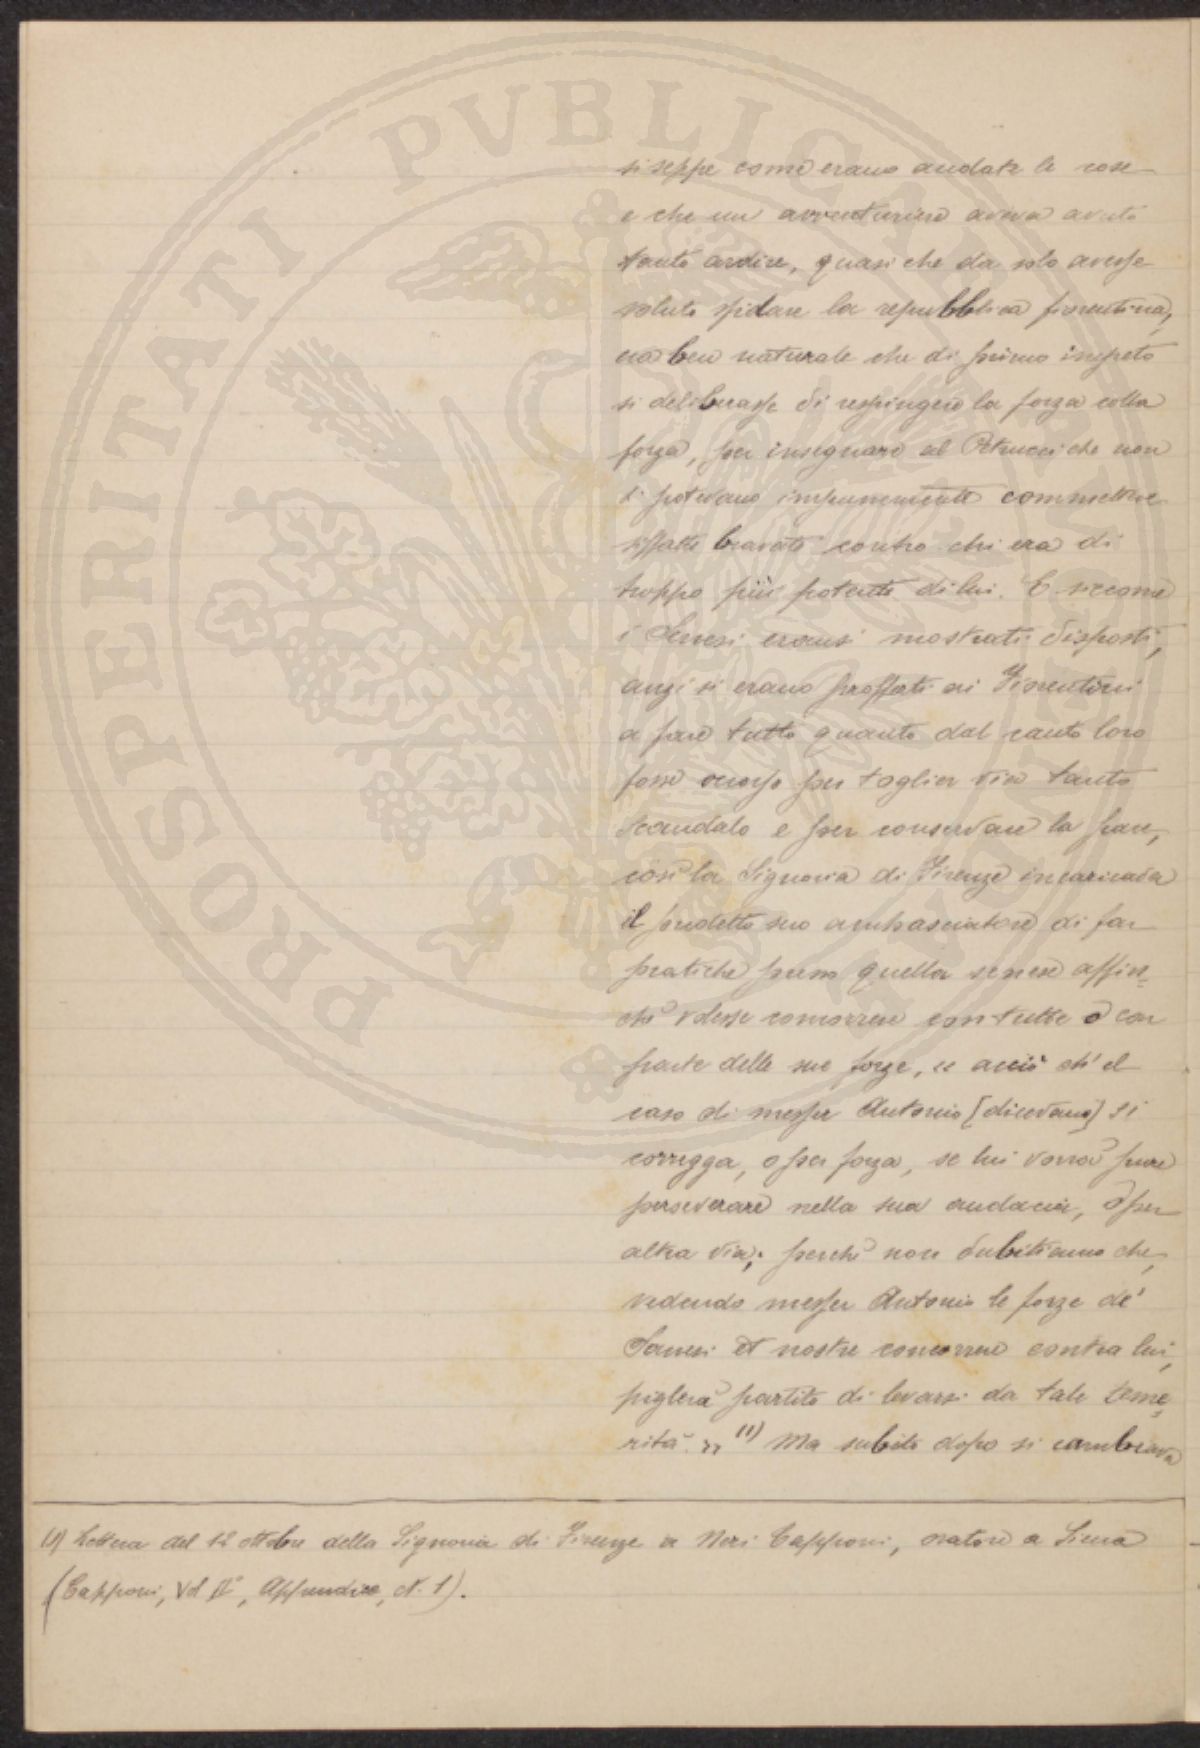 si seppe come erano andate le cose
e che un avventuriero aveva avuto
tanto ardire, quasi che da solo avesse
voluto sfidare la repubblica fiorentina,
era ben naturale che di primo impeto
si deliberasse di respingere la forza colla
forza, per insegnare al Petrucci che non
si potevano impunemente commettere
siffatte bravate contro chi era di
troppo più potente di lui. E siccome
i Senesi eransi mostrati disposti,
anzi si erano profferti ai Fiorentini
a fare tutto quanto dal canto loro
fosse occorso per toglier via tanto
scandalo e per conservare la pace,
così la Signoria di Firenze incaricava
il predetto suo ambasciatore di far
pratiche presso quella senese affin=
chè volesse concorrere con tutte o con
parte delle sue forze, « acciò ch' el
caso di messer Antonio [dicevano] si
corregga, o per forza, se lui vorrà pure
perseverare nella sua audacia, o per
altra via; perchè non dubitiamo che,
vedendo messer Antonio le forze de'
Sanesi et nostre concorrere contra lui,
piglierà partito di levarsi da tale teme=
rità. » (1) Ma subito dopo si cambiava
(1) Lettera del 12 ottobre della Signoria di Firenze a Neri Capponi, oratore a Siena
(Capponi, Vol II°, Appendice, N. 1).
PROSPERITATI PVBLICAE